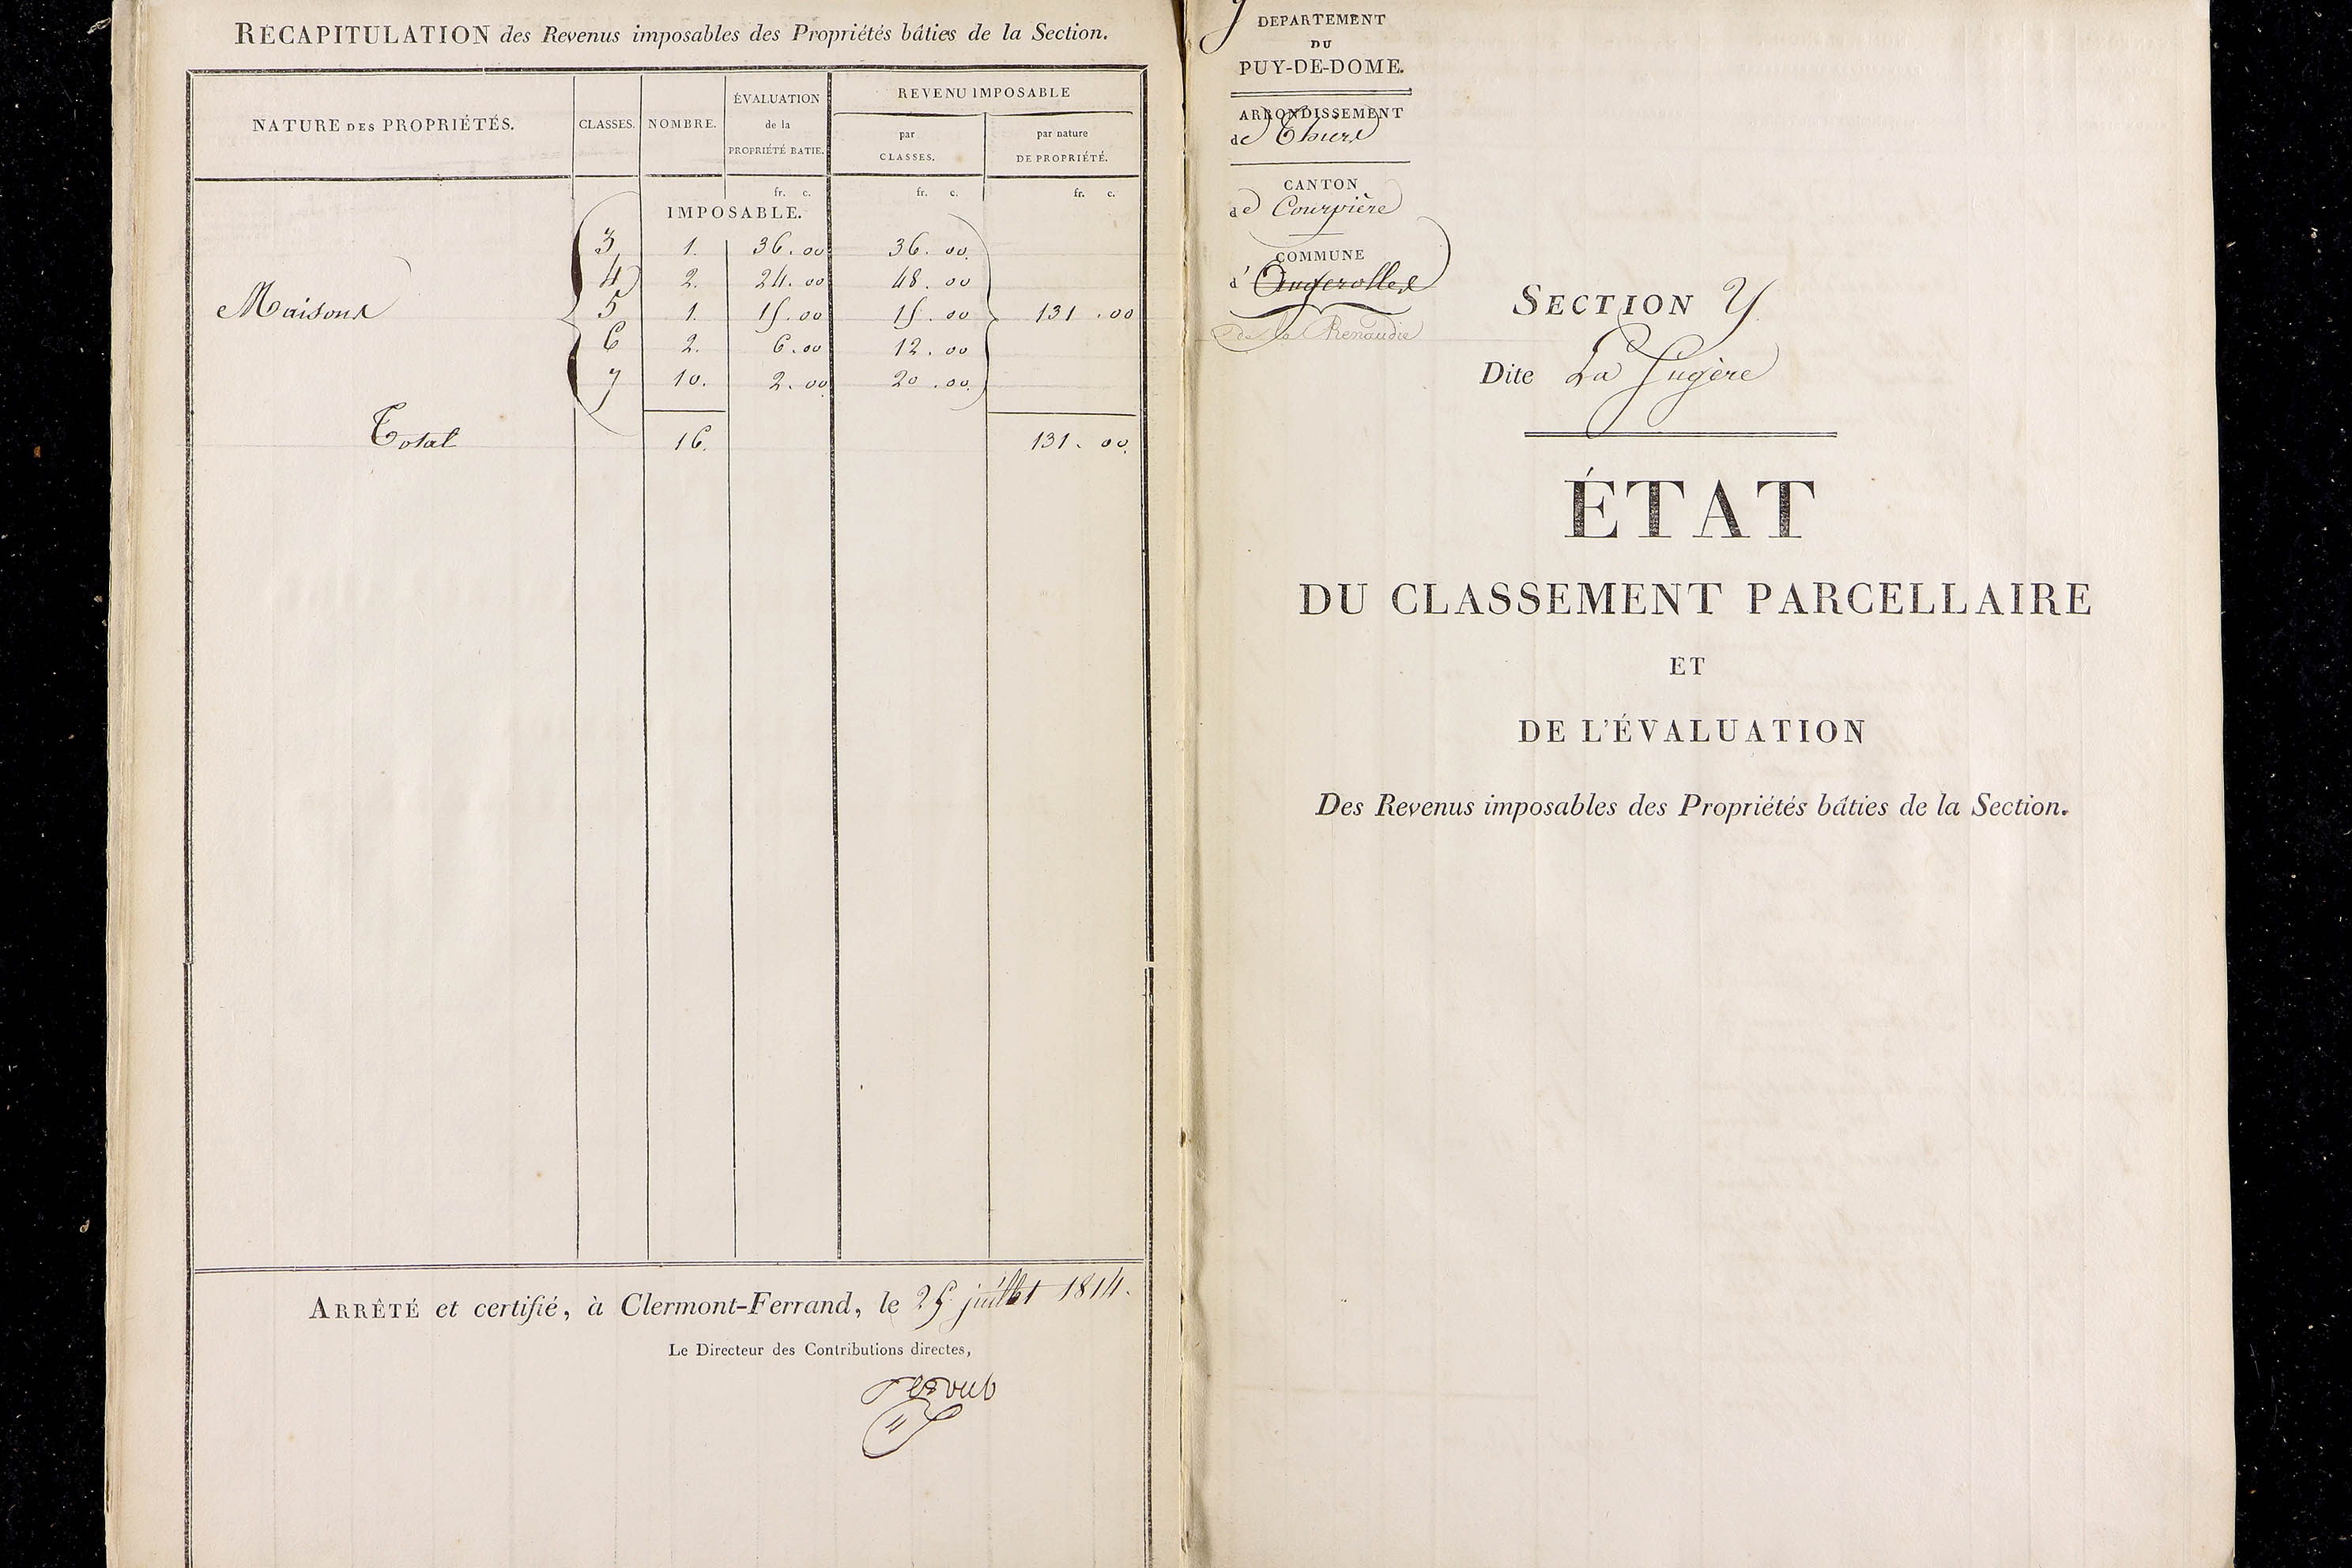 RÉCAPITULATION des Revenus imposables des Propriétés bâties de la Section.
NATURE DES PROPRIÉTÉS. CLASSES. NOMBRE. ÉVALUATION de la PROPRIÉTÉ BATIE. REVENU IMPOSABLE
par CLASSES. par nature DE PROPRIÉTÉ.
fr. c. fr. c. fr. c.
IMPOSABLE.
3 1. 36.00 36.00.
4 2. 24.00 48.00
Maisons 5 1. 15.00 15.00 131.00
6 2. 6.00 12.00
7 10. 2.00 20.00.
Total 16. 131.00.
ARRÊTÉ et certifié, à Clermont-Ferrand, le 25 juillet 1814.
Le Directeur des Contributions directes,
DEPARTEMENT
DU
PUY-DE-DOME.
ARRONDISSEMENT
de Thiers
CANTON
de Courpière
COMMUNE
d'Augerolles
de la Renaudie
SECTION Y
Dite La
ÉTAT
DU CLASSEMENT PARCELLAIRE
ET
DE L'ÉVALUATION
Des Revenus imposables des Propriétés bâties de la Section.